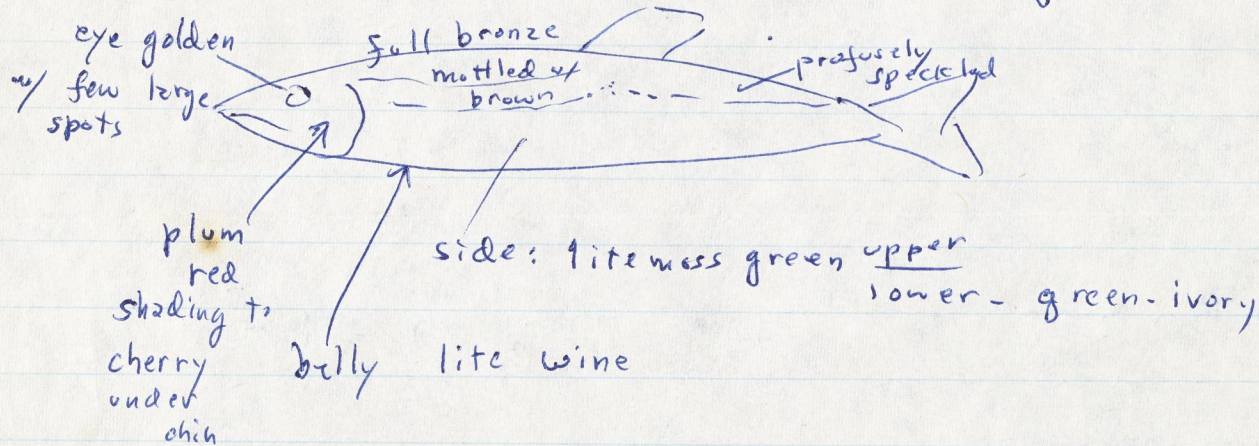 eye golden
w/ few large
spots
full bronze
mottled w/
brown
profusely
speckled
plum
red
shading to
cherry
under
chin
side: lite moss green upper
lower - green-ivory
belly lite wine